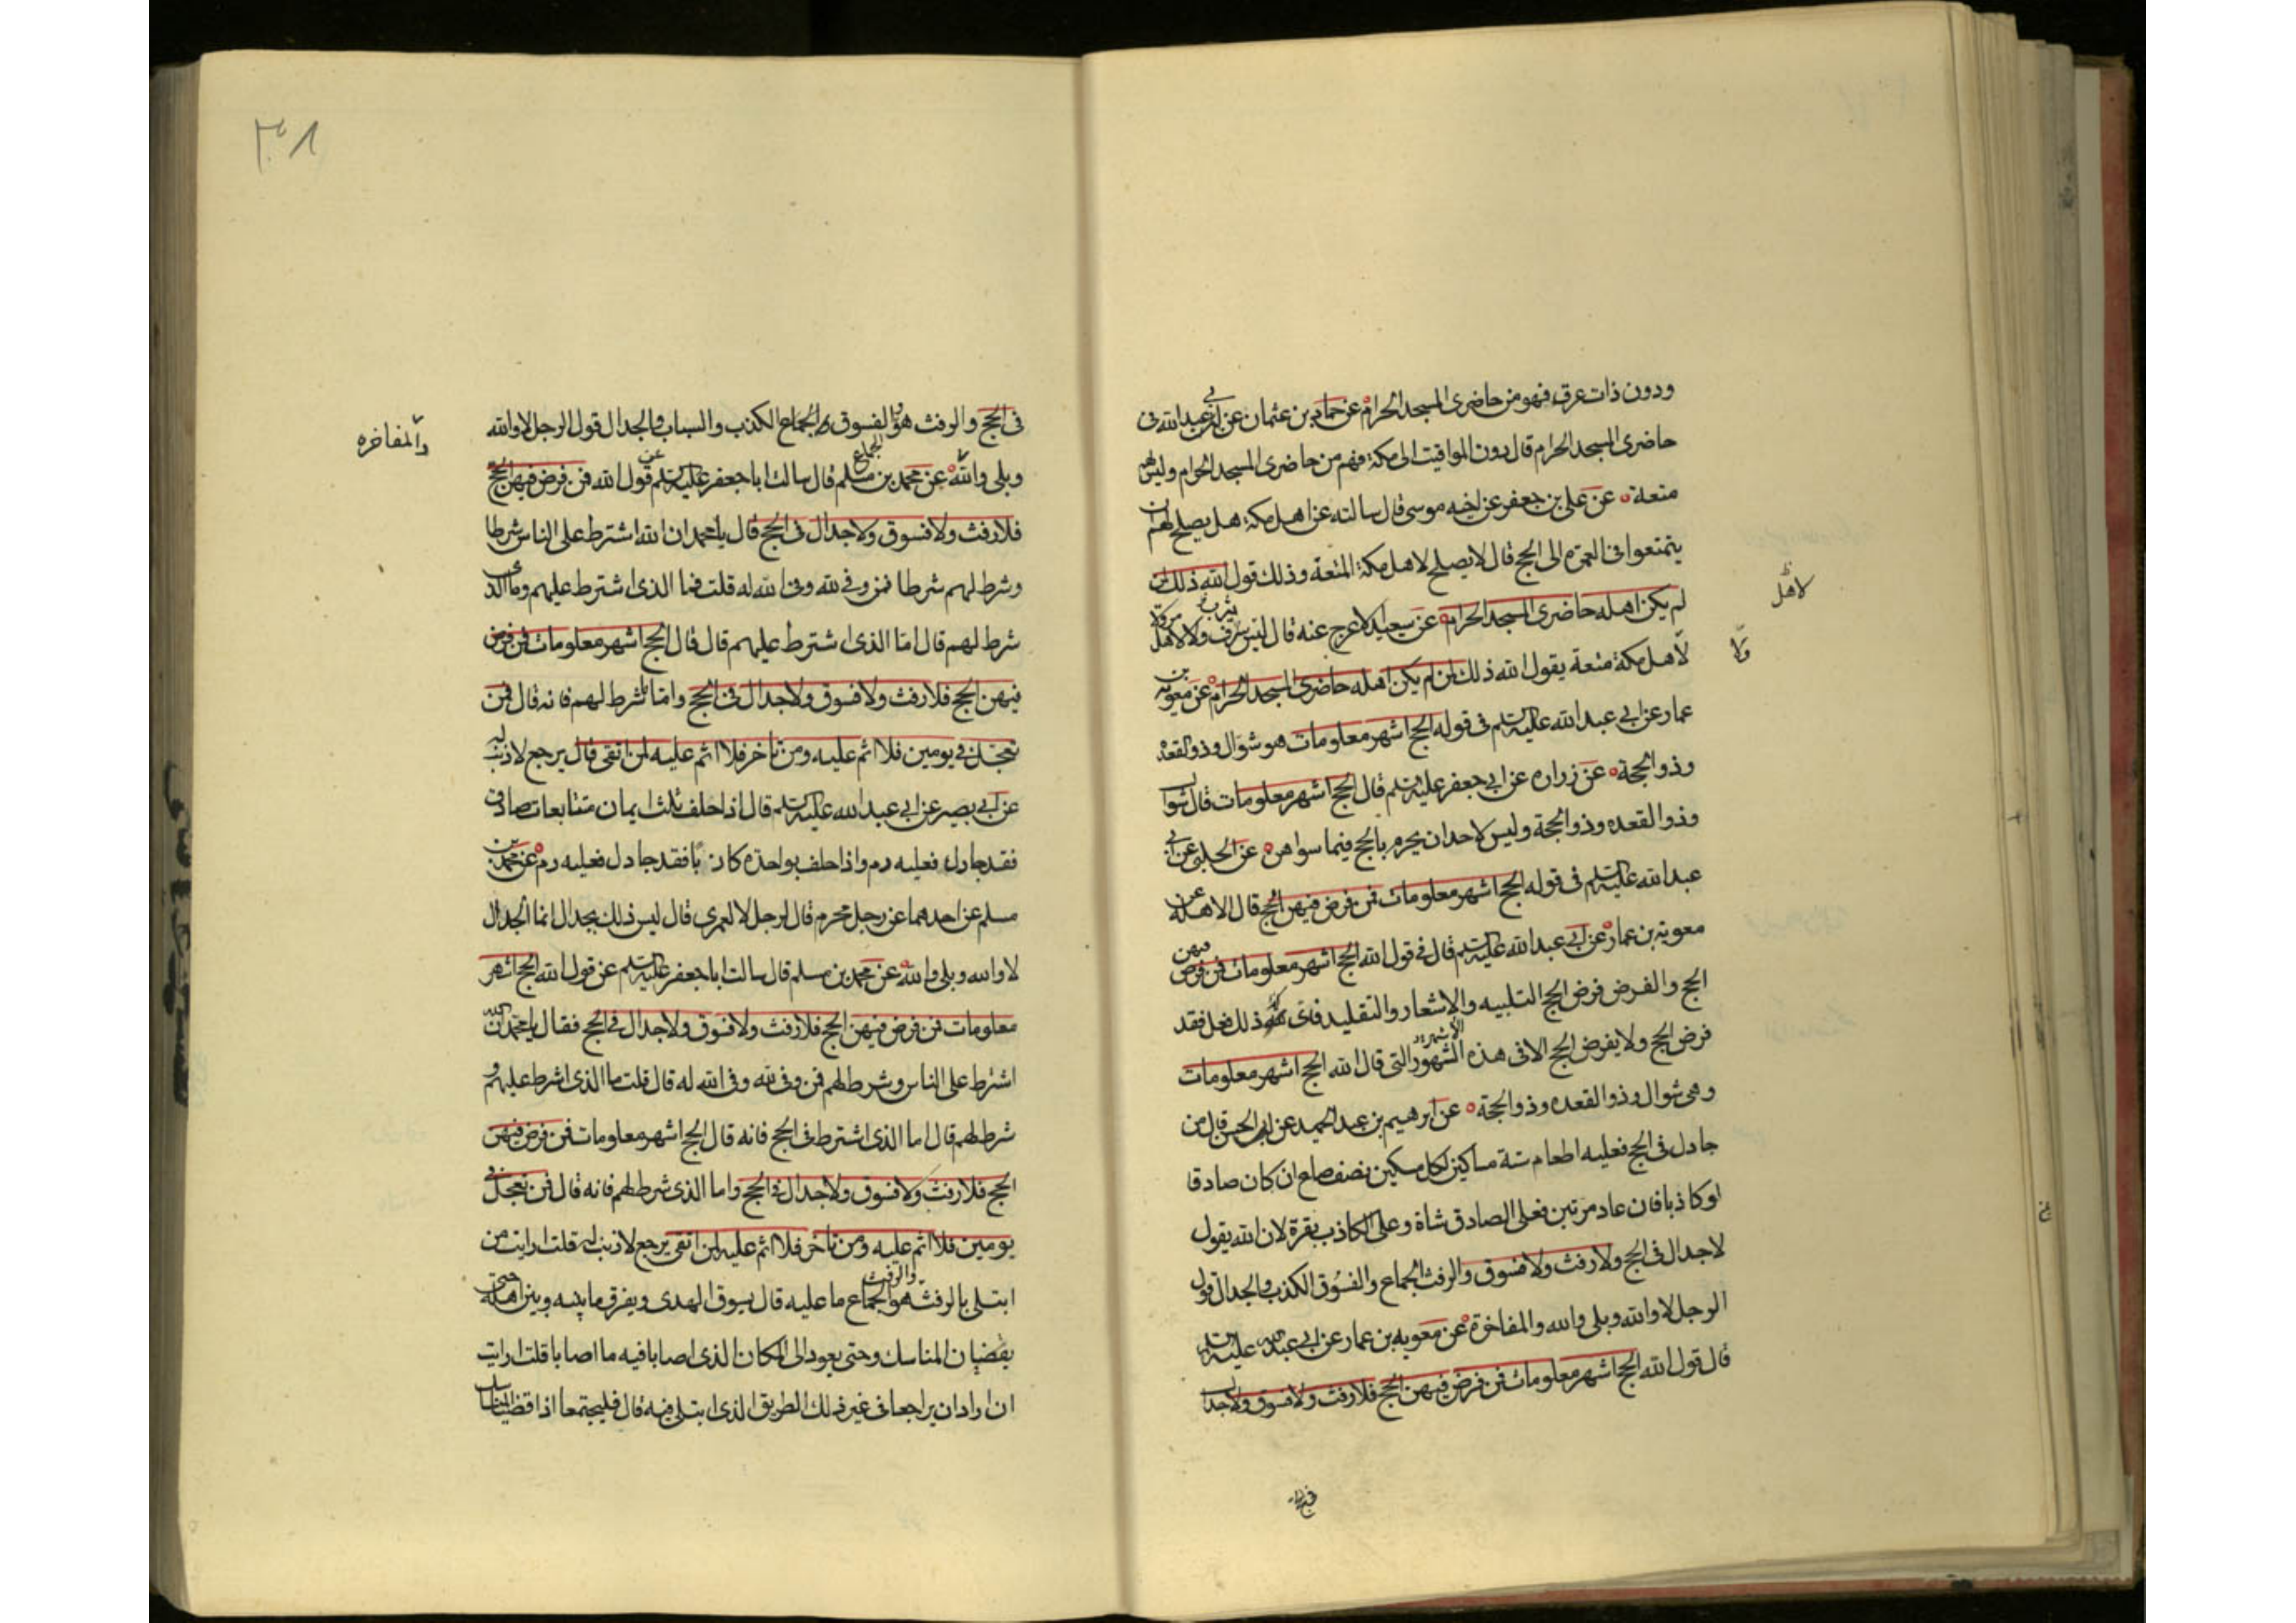 ودون ذات عرق فهو من حاضرى المسجد الحرام عن حماد بن عثمان عن ابى عبد الله فى
حاضرى المسجد الحرام قال دون المواقيت الى مكة فهم من حاضرى المسجد الحرام وليس لهم
متعة عن على بن جعفر عن اخيه موسى قال سالته عن اهل مكة هل يصلح لهم ان
يتمتعوا فى العمرة الى الحج قال لا يصلح لاهل مكة المتعة وذلك قول الله ذلك لمن
لم يكن اهله حاضرى المسجد الحرام عن سعيد الاعرج عنه قال ليس لاهل سرف ولا لاهل مر ولا
لاهل
ولا
لاهل مكة متعة يقول الله ذلك لمن لم يكن اهله حاضرى المسجد الحرام عن معوية بن
عمار عن ابى عبد الله عليه السلم فى قوله الحج اشهر معلومات هو شوال وذو القعدة
وذو الحجة عن زراره عن ابى جعفر عليه السلم قال الحج اشهر معلومات قال شوال
وذو القعده وذو الحجة وليس لاحد ان يحرم بالحج فيما سواهن عن الحلبى عن ابى
عبد الله عليه السلم فى قوله الحج اشهر معلومات فمن فرض فيهن الحج قال الاهلة عن
معوية بن عمار عن ابى عبد الله عليه السلم قال فى قول الله الحج اشهر معلومات فمن فرض فيهن
الحج والفرض فرض الحج التلبيه والاشعار والتقليد فاى ذلك فعل فقد
فرض الحج ولا يفرض الحج الا فى هذه الشهور التى قال الله الحج اشهر معلومات
الاشهر
وهى شوال وذو القعده وذو الحجة عن ابرهيم بن عبد الحميد عن ابى الحسن قال من
جادل فى الحج فعليه اطعام ستة مساكين لكل مسكين نصف صاع ان كان صادقا
او كاذبا فان عاد مرتين فعلى الصادق شاة وعلى الكاذب بقرة لان الله يقول
لا جدال فى الحج ولا رفث ولا فسوق والرفث الجماع والفسوق الكذب والجدال قول
الرجل لا والله وبلى والله والمفاخرة عن معويه بن عمار عن ابى عبد الله عليه السلم
قال قول الله الحج اشهر معلومات فمن فرض فيهن الحج فلا رفث ولا فسوق ولا جدال
فى الحج
٣٠٨
فى الحج والرفث هو والفسوق الجماع الكذب والسباب والجدال قول الرجل لا والله
الجماع
والمفاخره
وبلى والله عن محمد بن مسلم قال سالت ابا جعفر عليه السلم عن قول الله فمن فرض فيهن الحج
فلا رفث ولا فسوق ولا جدال فى الحج قال يا محمد ان الله اشترط على الناس شرطا
وشرط لهم شرطا فمن وفى لله وفى الله له قلت فما الذى اشترط عليهم وما الذى
شرط لهم قال اما الذى اشترط عليهم قال قال الحج اشهر معلومات فمن فرض
فيهن الحج فلا رفث ولا فسوق ولا جدال فى الحج واما ما شرط لهم فانه قال فمن
تعجل فى يومين فلا اثم عليه ومن تاخر فلا اثم عليه لمن اتقى قال يرجع لا ذنب له
عن ابى بصير عن ابى عبد الله عليه السلم قال اذا حلف ثلث ايمان متتابعات صادق
فقد جادل فعليه دم واذا حلف بواحدة كاذبا فقد جادل فعليه دم عن محمد بن
مسلم عن احدهما عن رجل محرم قال لرجل لا لعمرى قال ليس ذلك بجدال انما الجدال
لا والله وبلى والله عن محمد بن مسلم قال سالت ابا جعفر عليه السلم عن قول الله الحج اشهر
معلومات فمن فرض فيهن الحج فلا رفث ولا فسوق ولا جدال فى الحج فقال يا محمد ان الله
اشترط على الناس وشرط لهم فمن وفى لله وفى الله له قال قلت ما الذى اشرط عليهم و
شرط لهم قال اما الذى اشترط فى الحج فانه قال الحج اشهر معلومات فمن فرض فيهن
الحج فلا رفث ولا فسوق ولا جدال فى الحج واما الذى شرط لهم فانه قال فمن تعجل فى
يومين فلا اثم عليه ومن تاخر فلا اثم عليه لمن اتقى يرجع لا ذنب له قلت ارايت من
ابتلى بالرفث والرفث هو الجماع ما عليه قال يسوق الهدى ويفرق ما بينه وبين اهله حتى
يقضيان المناسك وحتى يعودا الى المكان الذى اصابا فيه ما اصابا قلت ارايت
ان ارادا ان يراجعا فى غير ذلك الطريق الذى ابتلى فيه قال فليجتمعا اذا قضيا المناسك